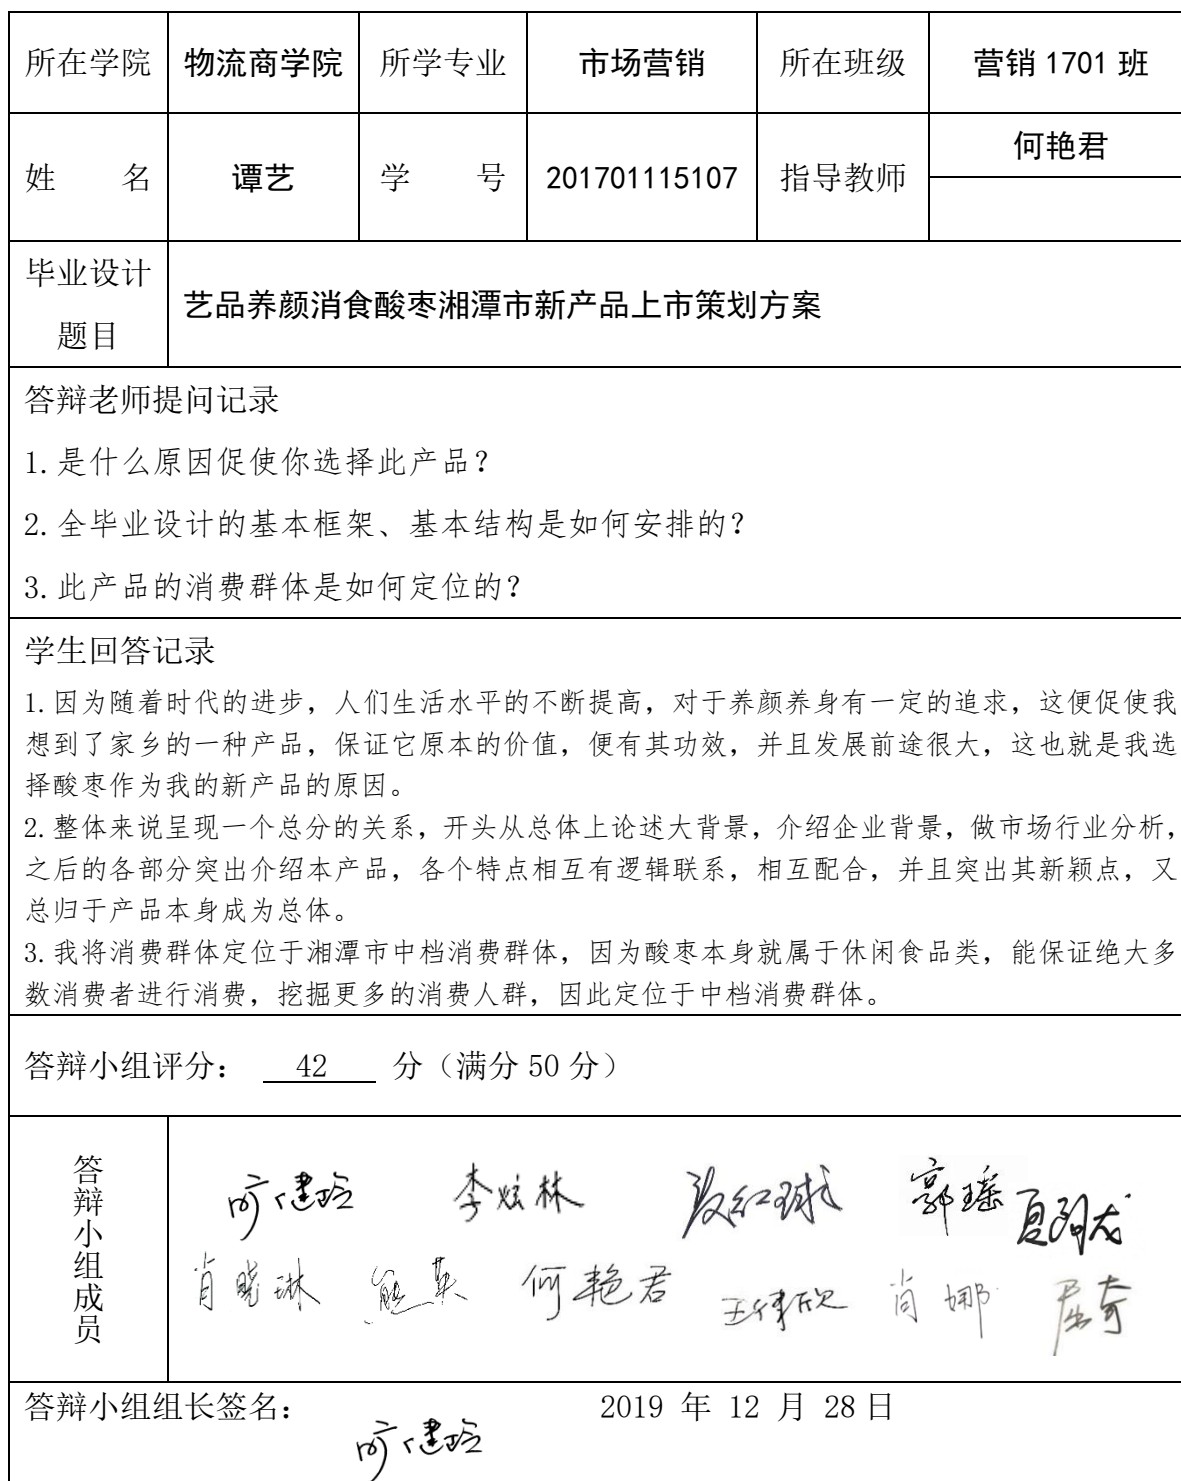 所在学院 物流商学院 所学专业 市场营销 所在班级 营销 1701 班
姓 名 谭艺 学 号 201701115107 指导教师 何艳君
毕业设计
题目
艺品养颜消食酸枣湘潭市新产品上市策划方案
答辩老师提问记录
1.是什么原因促使你选择此产品？
2.全毕业设计的基本框架、基本结构是如何安排的？
3.此产品的消费群体是如何定位的？
学生回答记录
1.因为随着时代的进步，人们生活水平的不断提高，对于养颜养身有一定的追求，这便促使我
想到了家乡的一种产品，保证它原本的价值，便有其功效，并且发展前途很大，这也就是我选
择酸枣作为我的新产品的原因。
2.整体来说呈现一个总分的关系，开头从总体上论述大背景，介绍企业背景，做市场行业分析，
之后的各部分突出介绍本产品，各个特点相互有逻辑联系，相互配合，并且突出其新颖点，又
总归于产品本身成为总体。
3.我将消费群体定位于湘潭市中档消费群体，因为酸枣本身就属于休闲食品类，能保证绝大多
数消费者进行消费，挖掘更多的消费人群，因此定位于中档消费群体。
答辩小组评分： 42 分（满分 50 分）
答辩小组成员
李炫林 郭瑶
肖晓琳 熊英 何艳君 肖娜 屈奇
答辩小组组长签名： 2019 年 12 月 28 日